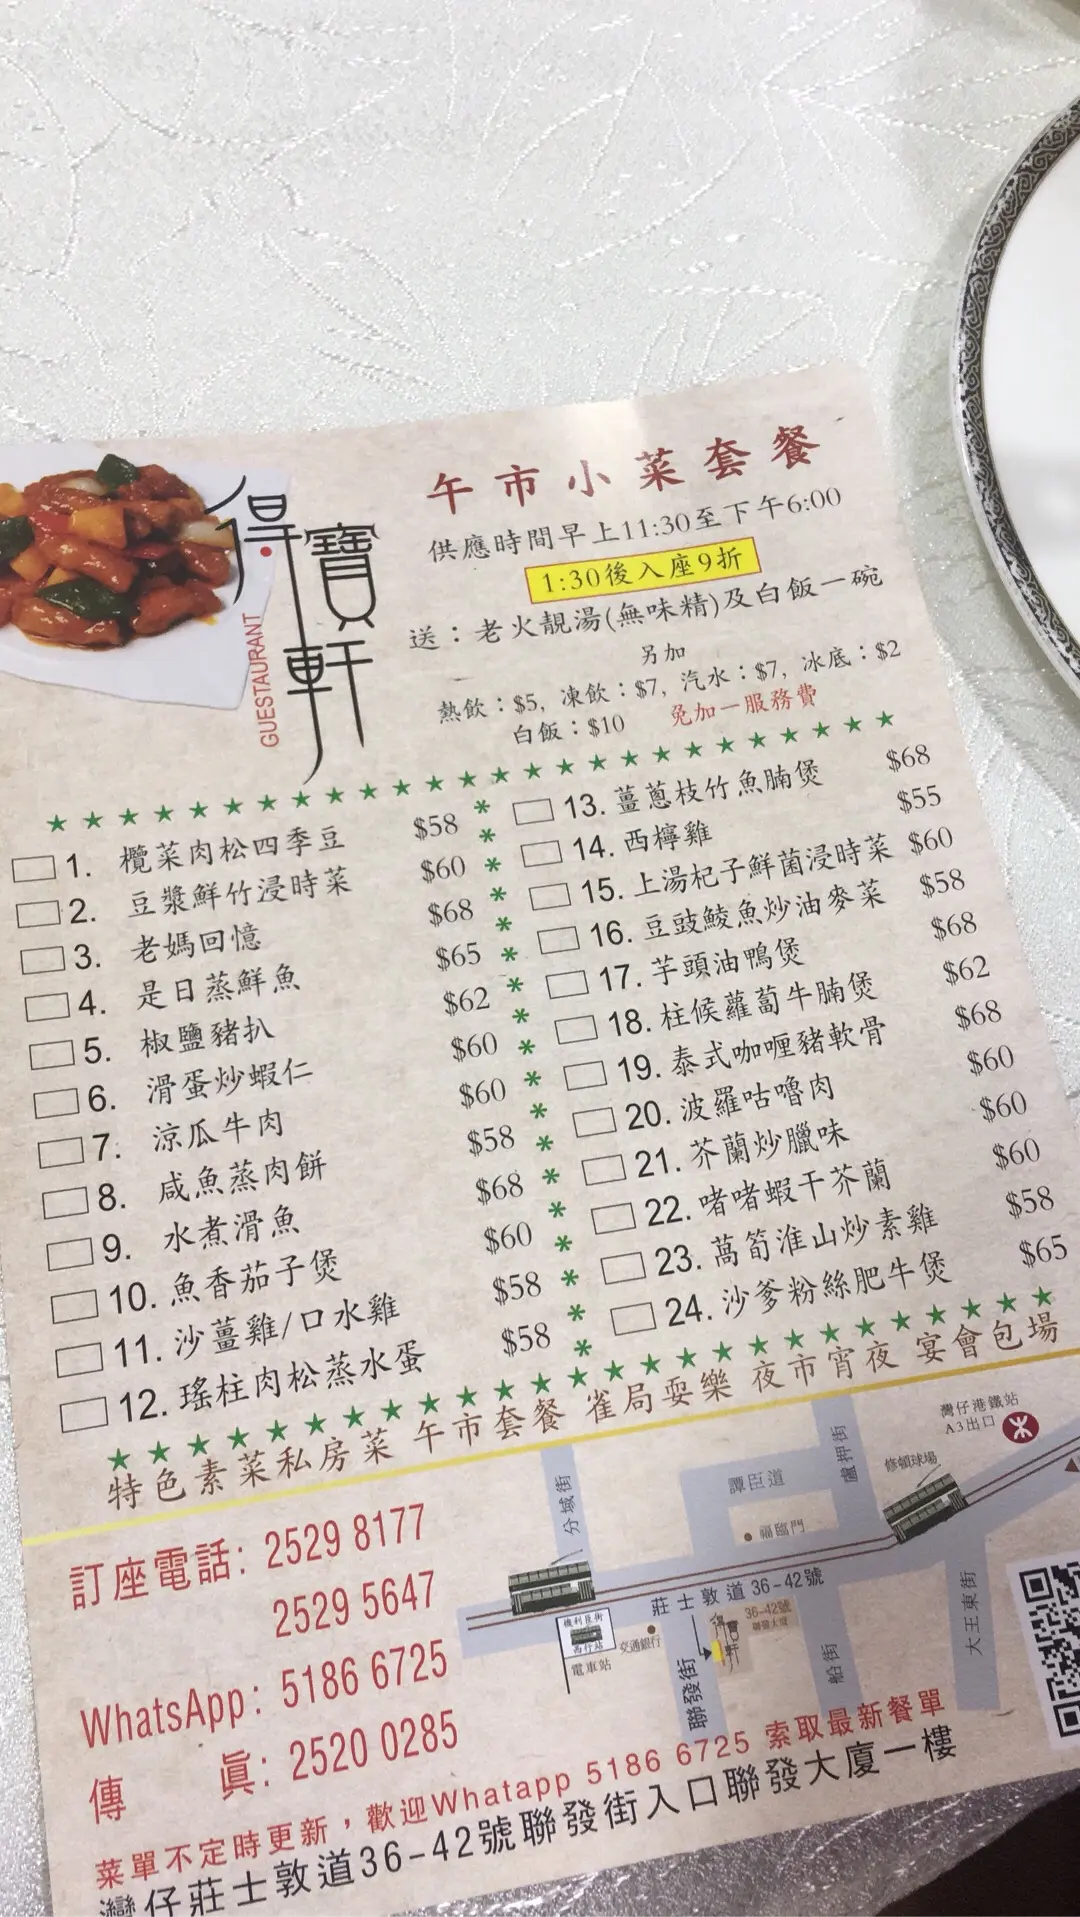 得寶軒
GUESTAURANT
午市小菜套餐
供應時間早上11:30至下午6:00
1:30後入座9折
送：老火靚湯(無味精)及白飯一碗
另加
熱飲：$5, 凍飲：$7, 汽水：$7, 冰底：$2
白飯：$10 免加一服務費
1. 欖菜肉松四季豆 $58
2. 豆漿鮮竹浸時菜 $60
3. 老媽回憶 $68
4. 是日蒸鮮魚 $65
5. 椒鹽豬扒 $62
6. 滑蛋炒蝦仁 $60
7. 涼瓜牛肉 $60
8. 咸魚蒸肉餅 $58
9. 水煮滑魚 $68
10. 魚香茄子煲 $60
11. 沙薑雞/口水雞 $58
12. 瑤柱肉松蒸水蛋 $58
13. 薑蔥枝竹魚腩煲 $68
14. 西檸雞 $55
15. 上湯杞子鮮菌浸時菜 $60
16. 豆豉鯪魚炒油麥菜 $58
17. 芋頭油鴨煲 $68
18. 柱候蘿蔔牛腩煲 $62
19. 泰式咖喱豬軟骨 $68
20. 波羅咕嚕肉 $60
21. 芥蘭炒臘味 $60
22. 啫啫蝦干芥蘭 $60
23. 萵筍淮山炒素雞 $58
24. 沙爹粉絲肥牛煲 $65
特色素菜私房菜 午市套餐 雀局耍樂 夜市宵夜 宴會包場
訂座電話: 2529 8177
2529 5647
WhatsApp: 5186 6725
傳真: 2520 0285
灣仔港鐵站
A3出口
修頓球場
盧押街
譚臣道
福臨門
分域街
莊士敦道 36-42號
36-42號
聯發大廈
得寶軒
機利臣街
西行站
電車站
交通銀行
聯發街
船街
大王東街
菜單不定時更新，歡迎Whatapp 5186 6725 索取最新餐單
灣仔莊士敦道36-42號聯發街入口聯發大廈一樓